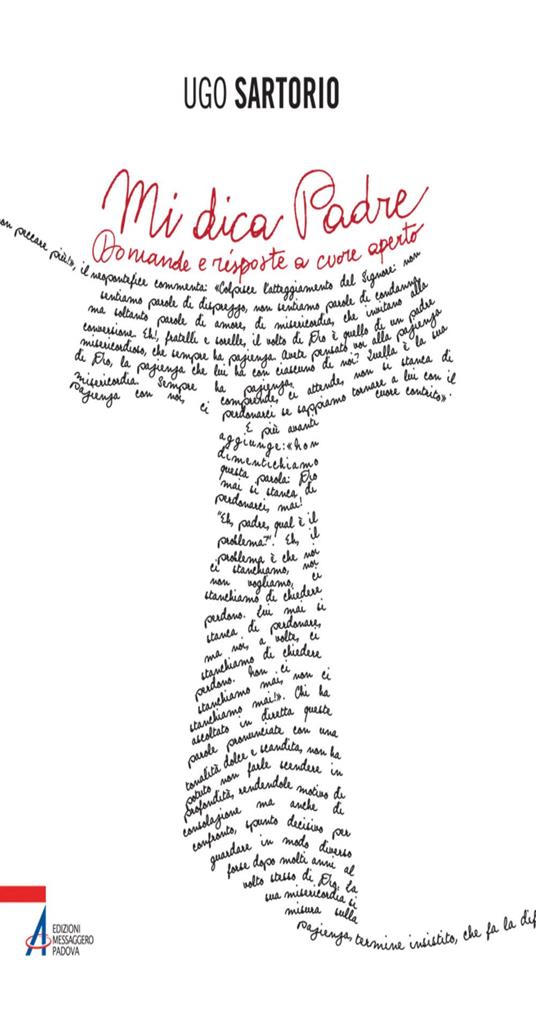 UGO SARTORIO
Mi dica Padre
Domande e risposte a cuore aperto
non peccare più!», il neopontefice commenta: «Colpisce l'atteggiamento del Signore: non
sentiamo parole di disprezzo, non sentiamo parole di condanna,
ma soltanto parole di amore, di misericordia, che invitano alla
conversione. Eh!, fratelli e sorelle, il volto di Dio è quello di un padre
misericordioso, che sempre ha pazienza. Avete pensato voi alla pazienza
di Dio, la pazienza che lui ha con ciascuno di noi? Quella è la sua
misericordia. Sempre ha pazienza,
pazienza con noi, ci comprende, ci attende, non si stanca di
perdonarci se sappiamo tornare a lui con il
cuore contrito».
E più avanti
aggiunge: «Non
dimentichiamo
questa parola: Dio
mai si stanca di
perdonarci, mai!
"Eh, padre, qual è il
problema?". Eh, il
problema è che noi
ci stanchiamo, noi
non vogliamo, ci
stanchiamo di chiedere
perdono. Lui mai si
stanca di perdonare,
ma noi, a volte, ci
stanchiamo di chiedere
perdono. Non ci
stanchiamo mai, non ci
stanchiamo mai!». Chi ha
ascoltato in diretta queste
parole pronunciate con una
tonalità dolce e scandita, non ha
potuto non farle scendere in
profondità, rendendole motivo di
consolazione ma anche di
confronto, spunto decisivo per
guardare in modo diverso
forse dopo molti anni al
volto stesso di Dio: la
sua misericordia si
misura sulla
pazienza, termine insistito, che fa la dif
EDIZIONI
MESSAGGERO
PADOVA